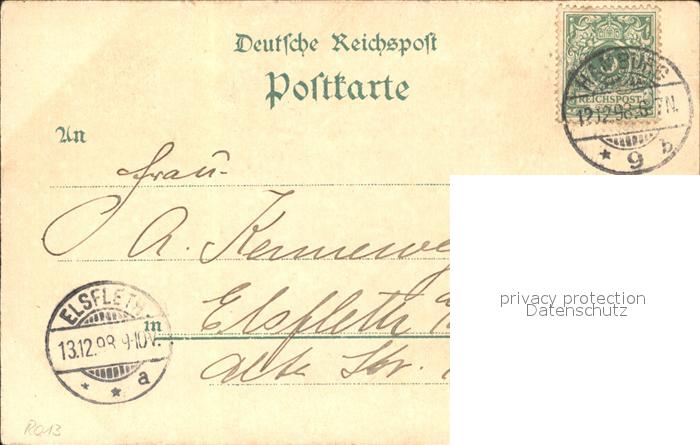 Deutsche Reichspost
Postkarte
REICHSPOST
HAMBURG
12.12.98. 6-7N.
* 9 b
An
Frau
A.
Elsfleth
in
Alte Str.
ELSFLETH
13.12.98 9-10V.
* * a
privacy protection
Datenschutz
R013